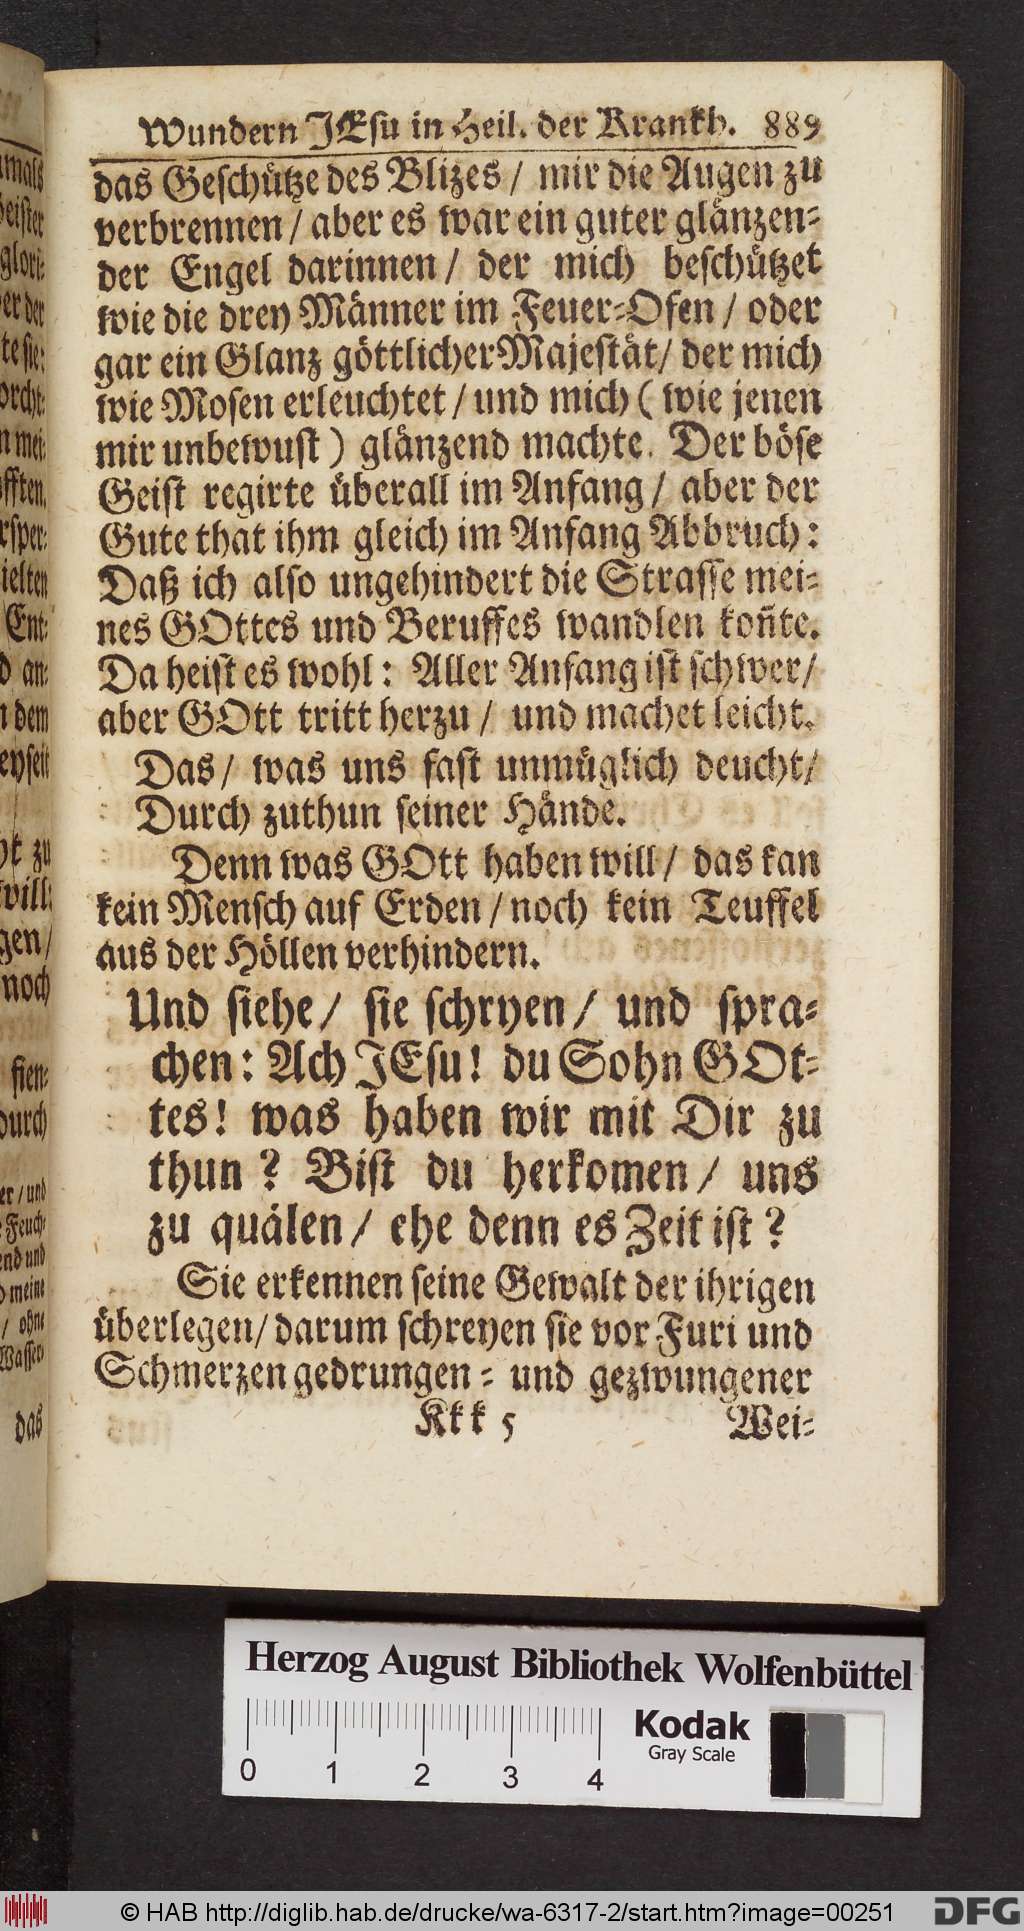 Wundern JEsu in Heil. der Krankh. 889
das Geschütze des Blizes / mir die Augen zu
verbrennen / aber es war ein guter glänzen-
der Engel darinnen / der mich beschützet
wie die drey Männer im Feuer-Ofen / oder
gar ein Glanz göttlicher Majestät / der mich
wie Mosen erleuchtet / und mich ( wie jenen
mir unbewust ) glänzend machte. Der böse
Geist regirte überall im Anfang / aber der
Gute that ihm gleich im Anfang Abbruch :
Daß ich also ungehindert die Strasse mei-
nes GOttes und Beruffes wandlen kon̄te.
Da heist es wohl : Aller Anfang ist schwer /
aber GOtt tritt herzu / und machet leicht.
Das / was uns fast unmüglich deucht /
Durch zuthun seiner Hände.
Denn was GOtt haben will / das kan
kein Mensch auf Erden / noch kein Teuffel
aus der Höllen verhindern.
Und siehe / sie schryen / und spra-
chen : Ach JEsu ! du Sohn GOt-
tes ! was haben wir mit Dir zu
thun ? Bist du herkomen / uns
zu quälen / ehe denn es Zeit ist ?
Sie erkennen seine Gewalt der ihrigen
überlegen / darum schreyen sie vor Furi und
Schmerzen gedrungen- und gezwungener
Kkk 5 Wei-
amals
Geister
glori-
er der
te sie:
orcht:
n mei-
fften.
rsper-
ielten
Ent-
d an-
n dem
eyseit
zu
will:
gen /
noch
sien-
durch
er / und
Feuch-
end und
meine
/ ohne
Wasser
das
Herzog August Bibliothek Wolfenbüttel
0 1 2 3 4
Kodak
Gray Scale
© HAB http://diglib.hab.de/drucke/wa-6317-2/start.htm?image=00251
DFG